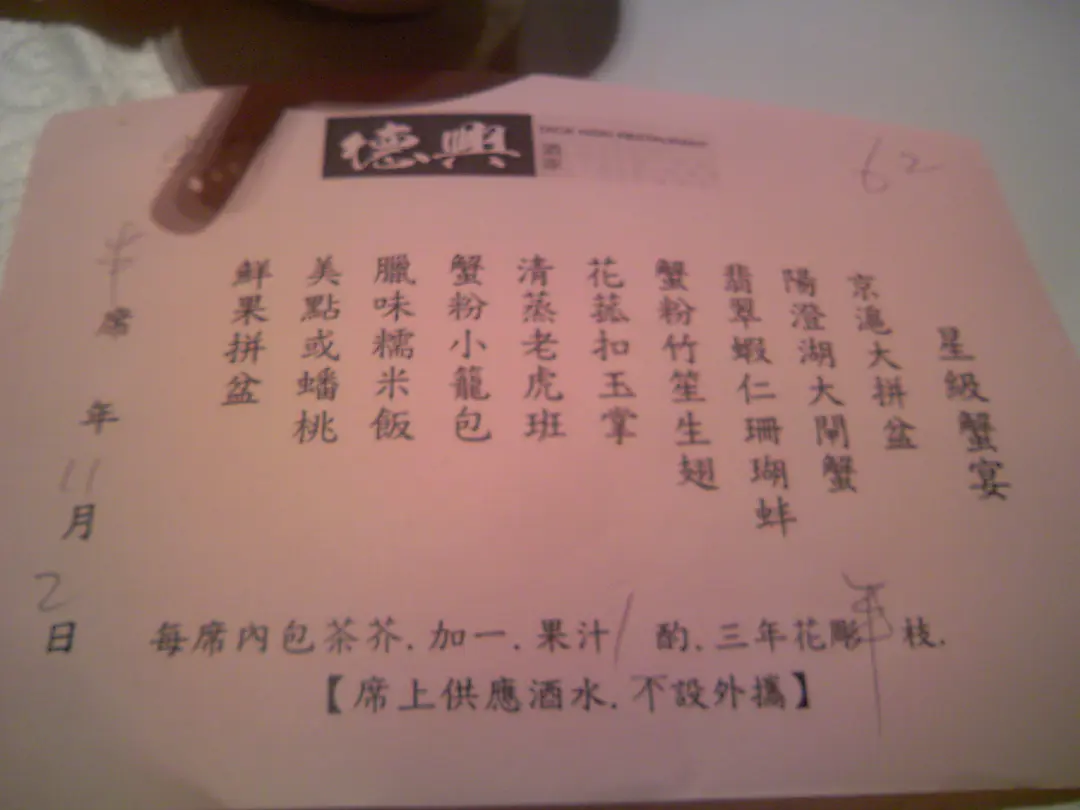 德興
酒家
62
星級蟹宴
京滬大拼盆
陽澄湖大閘蟹
翡翠蝦仁珊瑚蚌
蟹粉竹笙生翅
花菰扣玉掌
清蒸老虎班
蟹粉小籠包
臘味糯米飯
美點或蟠桃
鮮果拼盆
半席
年11月2日
每席內包茶芥.加一.果汁1酌.三年花彫半枝.
【席上供應酒水.不設外攜】